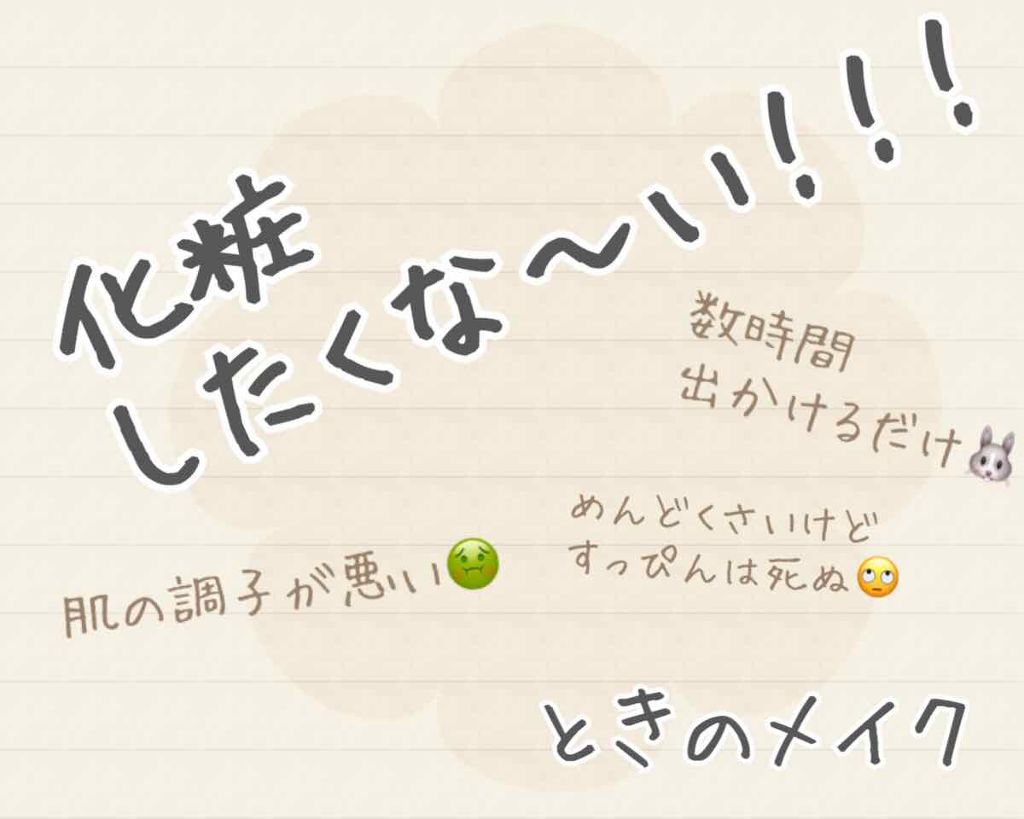 化粧
したくな〜い!!!
数時間
出かけるだけ🐰
めんどくさいけど
すっぴんは死ぬ🙄
肌の調子が悪い🤢
ときのメイク